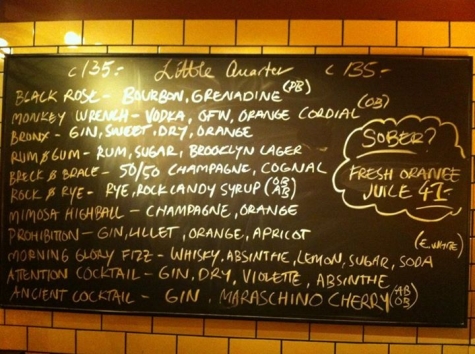 c/135:- Little Quarter c/135:-
BLACK ROSE - BOURBON, GRENADINE (PB)
MONKEY WRENCH - VODKA, OFW, ORANGE CORDIAL (OB)
BRONX - GIN, SWEET, DRY, ORANGE
RUM & GUM - RUM, SUGAR, BROOKLYN LAGER
BRECK & BRACE - 50/50 CHAMPAGNE, COGNAC
ROCK & RYE - RYE, ROCK CANDY SYRUP (OB AB)
MIMOSA HIGHBALL - CHAMPAGNE, ORANGE
PROHIBITION - GIN, LILLET, ORANGE, APRICOT
(E. WHITE)
MORNING GLORY FIZZ - WHISKY, ABSINTHE, LEMON, SUGAR, SODA
ATTENTION COCKTAIL - GIN, DRY, VIOLETTE, ABSINTHE
ANCIENT COCKTAIL - GIN, MARASCHINO CHERRY (AB OB)
SOBER?
FRESH ORANGE
JUICE 41:-